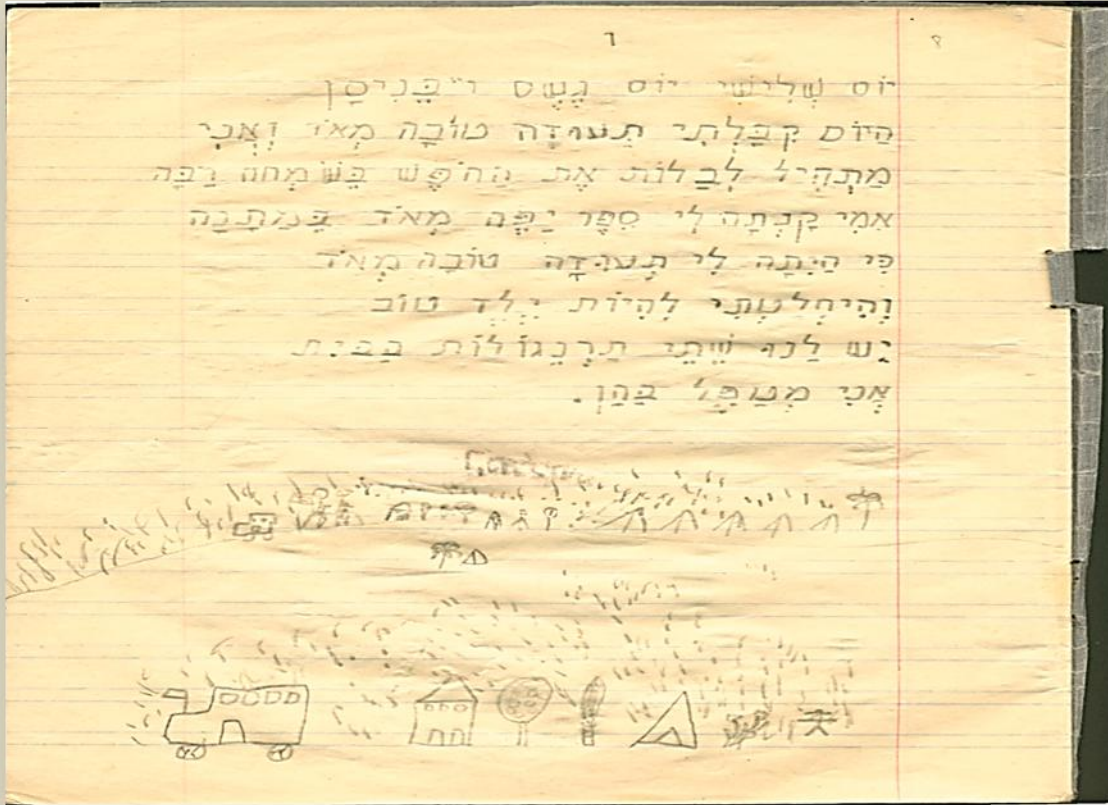 יוֹם שְׁלִישִׁי יוֹם גֶשֶׁם י״בְּנִיסָן
הַיוֹם קִבָּלְתִי תְעוּדָה טוֹבָה מְאֹד וְאֲנִי
מַתְחִיל לְבַלוֹת אֶת הַחֹפֶשׁ בְּשִׂמְחה רַבָּה
אִמִי קָנְתָה לִי סֵפֶר יַפֶה מְאֹד בְּמַתָנָה
כִּי הַיְתָה לִי תְעוּדָה טוֹבָה מְאֹד
וְהִיחְלַטְתִי לִהְיוֹת יֶלֶד טוֹב
יֵש לָנוּ שְׁתֵי תַרְנְגוֹלוֹת בַּבַּיִת
אֲנִי מְטַפֶּל בַּהֵן.